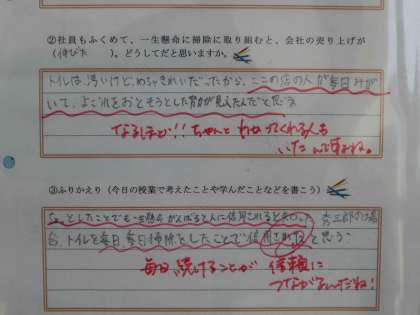 ②社員もふくめて、一生懸命に掃除に取り組むと、会社の売り上げが
(伸びた　　)。どうしてだと思いますか。
トイレは汚いけど、めちゃきれいだったから、ここの店の人が毎日みが
いて、よごれをおとそうとした努力が見えたんだと思う
なるほど!!ちゃんと わかってくれる人も
いたんですね。
③ふりかえり（今日の授業で考えたことや学んだことなどを書こう）
としたことでも一生懸命がんばると人に信用されると 秀三郎の場
合、トイレを毎日毎日掃除としたことで信用されたと思う。
毎日続けることが 信頼に
つながるんだね!